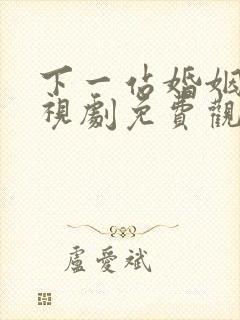 下一站婚姻
視劇免費觀
盧愛斌